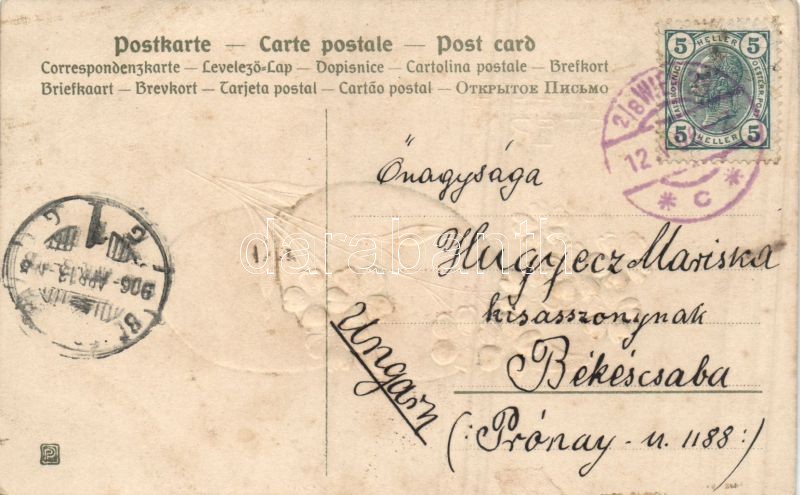 Postkarte — Carte postale — Post card
Correspondenzkarte – Levelező-Lap – Dopisnice – Cartolina postale – Brefkort
Briefkaart – Brevkort – Tarjeta postal – Cartão postal – Открытое Письмо
5 HELLER 5
5 HELLER 5
2/8 WIEN
12
* C *
Őnagysága
Hugyecz Mariska
kisasszonynak
Békéscsaba
(: Prónay - u. 1188 :)
Ungarn
906 APR 13
darabanth